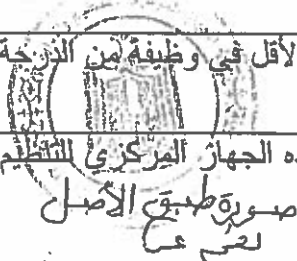 لأقل في وظيفة من الدرجة
ه الجهاز المركزي للتنظيم
صورة طبق الأصل